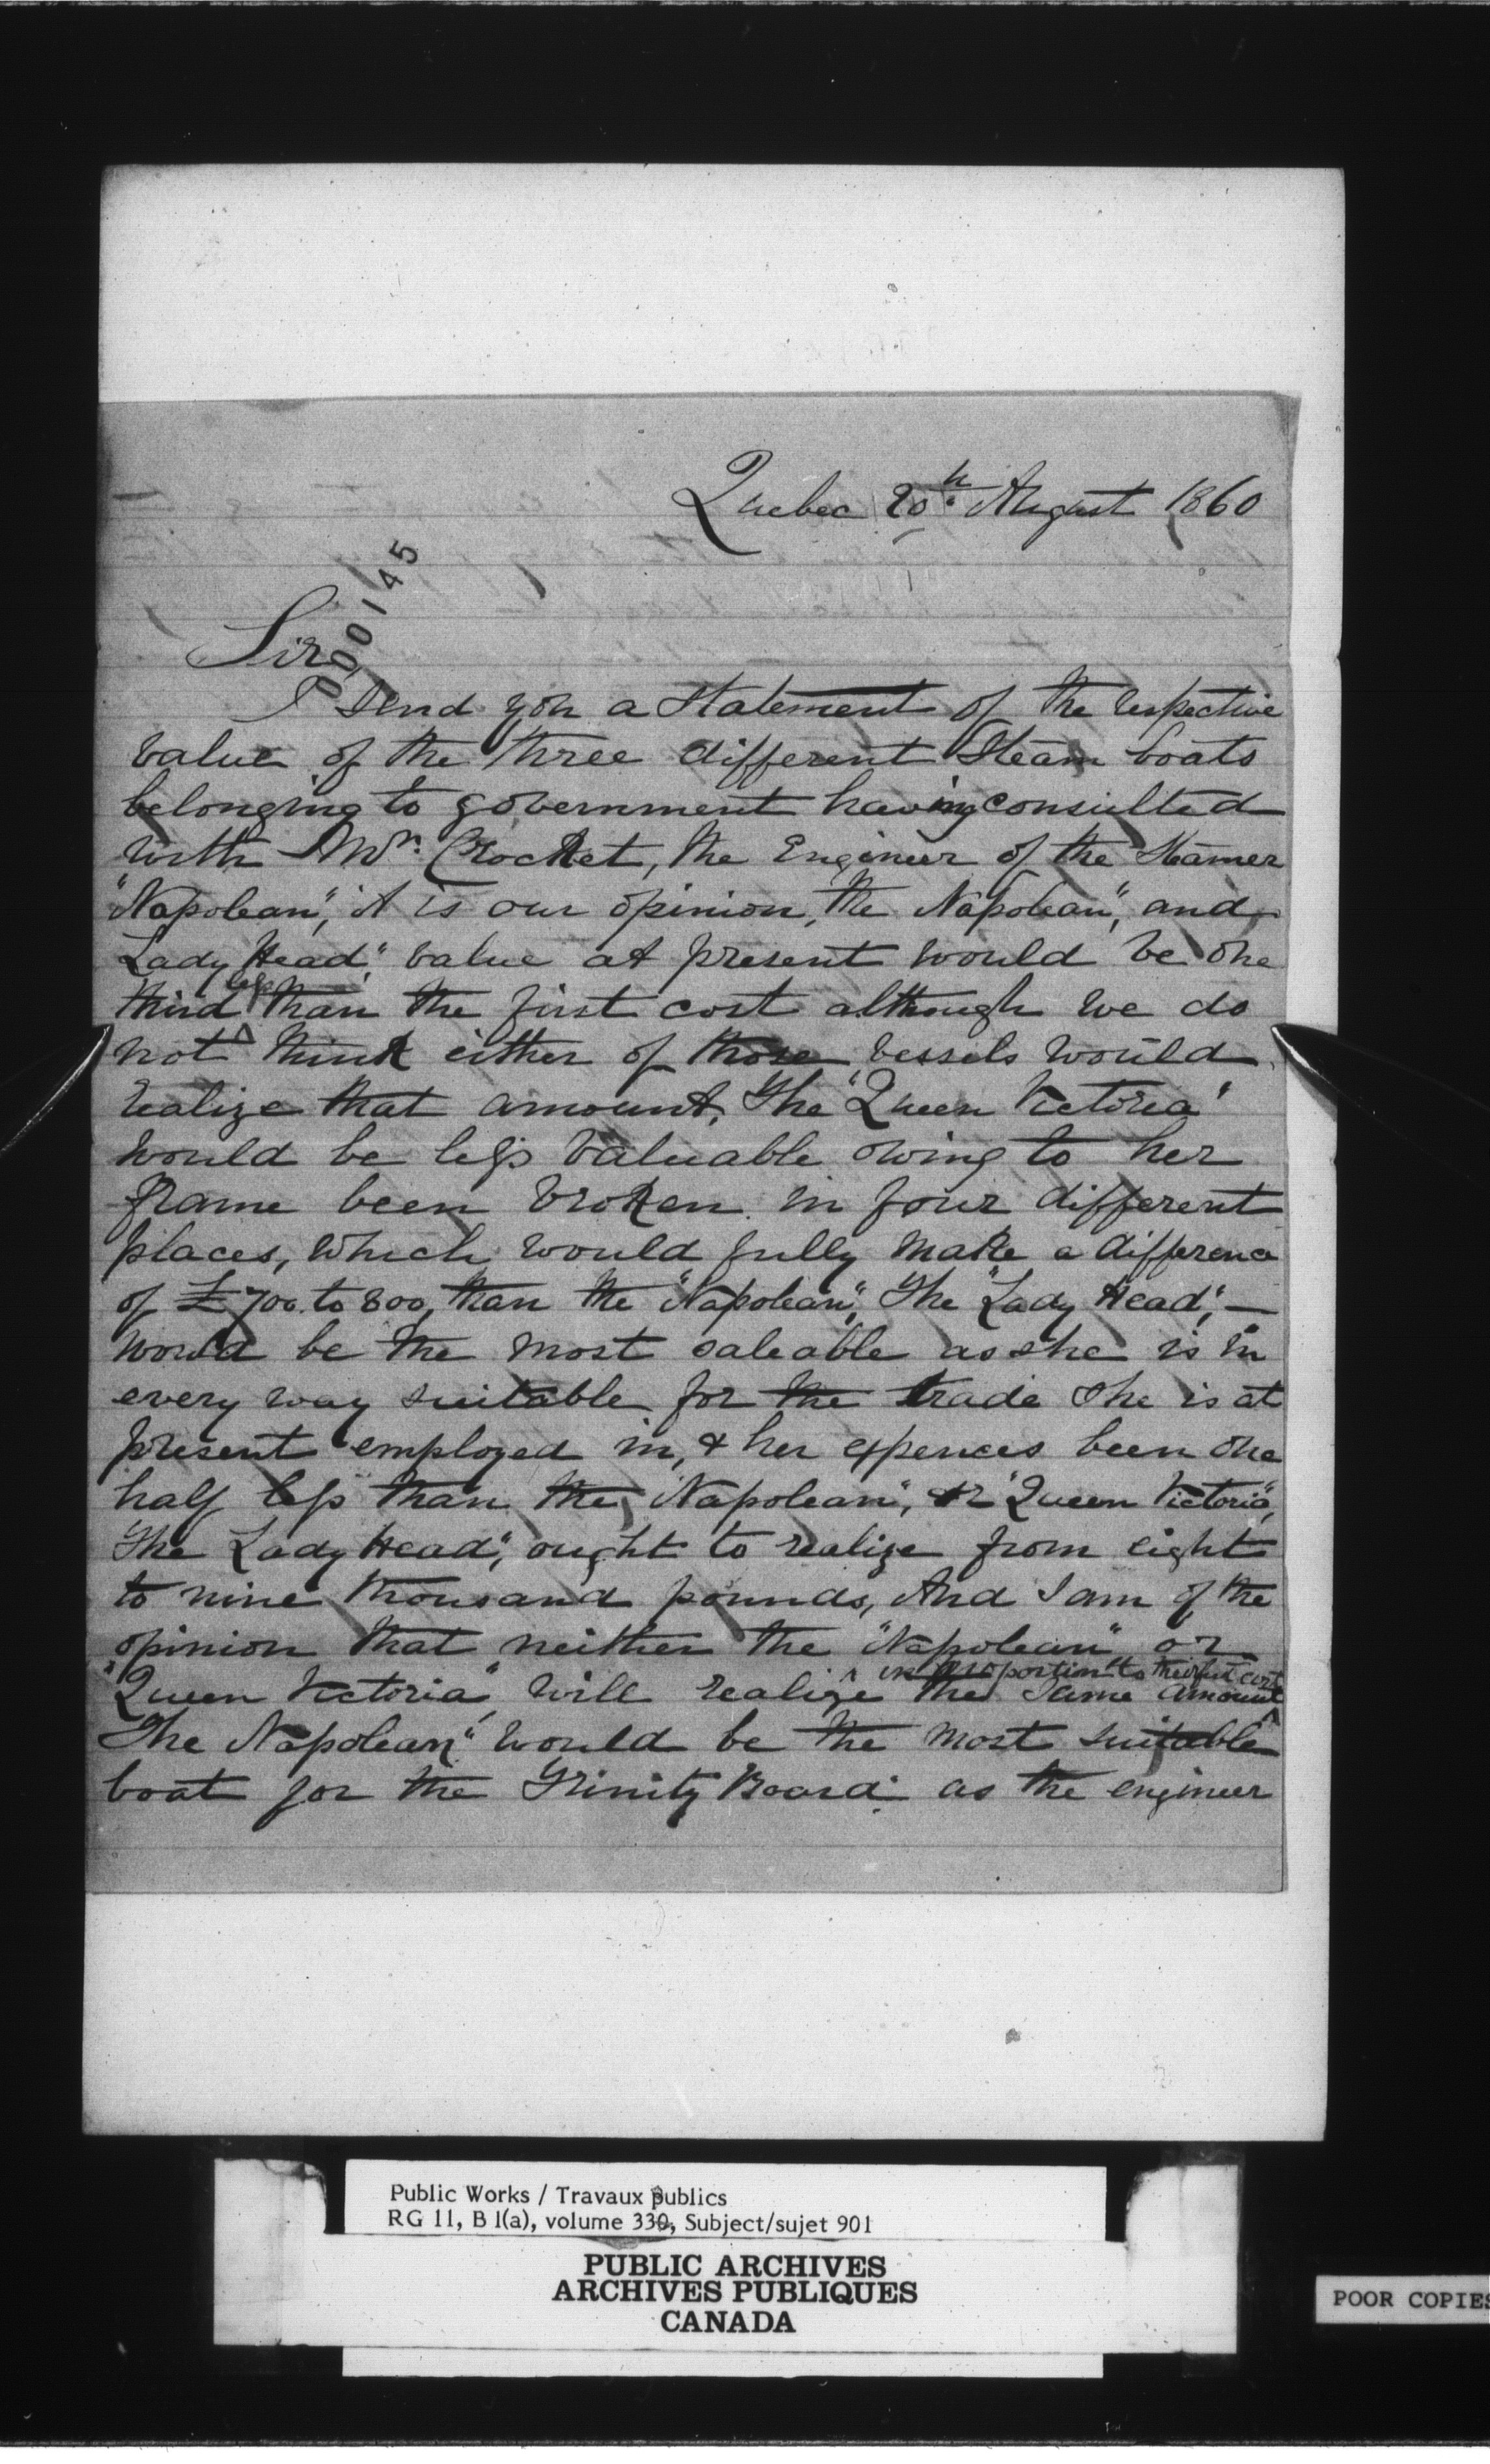 Quebec 20th. August 1860
000145
Sir,
I send you a statement of the respective
value of the three different Steam boats
belonging to government having consulted
with Mr. Crocket, the Engineer of the Steamer
"Napolean", it is our opinion, the Napolean", and
Lady Head", value at present would be one
third less than the first cost although we do
not think either of those vessels would
realize that amount, The "Queen Victoria"
would be less valuable owing to her
frame been broken in four different
places, which would fully make a difference
of £700 to 800, than the "Napolean", The "Lady Head", —
would be the most saleable as she is in
every way suitable for the trade She is at
present employed in, & her expences been one
half less than the, Napolean", or "Queen Victoria",
The Lady Head", ought to realize from eight
to nine thousand pounds, And I am of the
opinion that neither the "Napolean" or
in proportion to their first cost
"Queen Victoria", will realize the same amount
The Napolean" would be the most suitable
boat for the Trinity Board as the engineer
Public Works / Travaux publics
RG 11, B 1(a), volume 330, Subject/sujet 901
PUBLIC ARCHIVES
ARCHIVES PUBLIQUES
CANADA
POOR COPIES